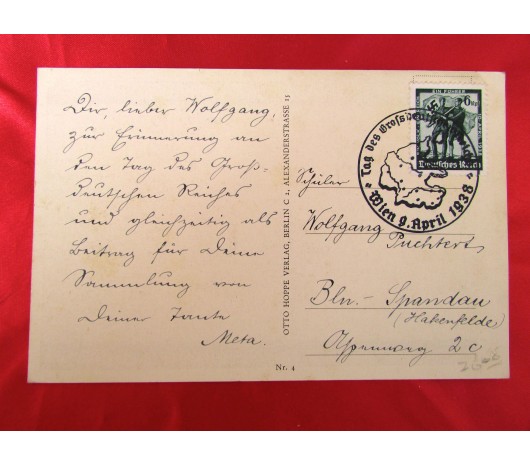 Dir, lieber Wolfgang,
zur Erinnerung an
den Tag des Groß-
deutschen Reiches
und gleichzeitig als
Beitrag für Deine
Sammlung von
Deiner Tante
Meta.
OTTO HOPPE VERLAG, BERLIN C 2, ALEXANDERSTRASSE 13
Nr. 4
EIN FÜHRER
6
Deutsches Reich
Tag des Großdeutschen
Wien 9. April 1938
Schüler
Wolfgang
Puchtert
Bln.- Spandau
(Hakenfelde)
2 c